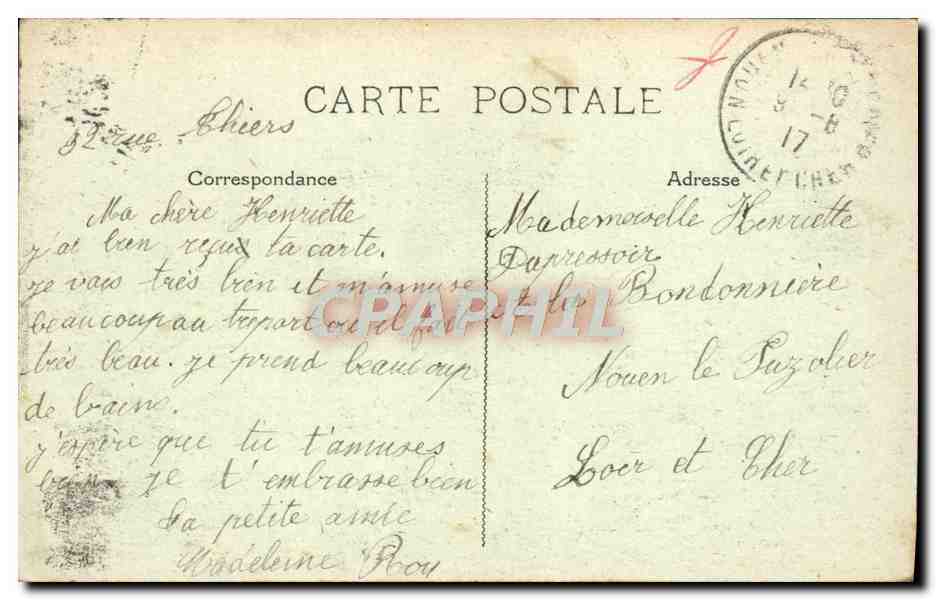 CARTE POSTALE
32 rue Thiers
Correspondance
Ma chère Henriette
j'ai bien reçue ta carte.
je vais très bien et m'amuse
beaucoup au tréport où il fait
très beau. je prend beaucoup
de bains.
j'espère que tu t'amuses
bien je t'embrasse bien
Ta petite amie
Madeleine Roy
Adresse
Mademoiselle Henriette
Dupressoir
et la Bondonnière
Nouen le Fuzolier
Loir et Cher
NOUEN
LOIR ET CHER
17
CPAPHIL